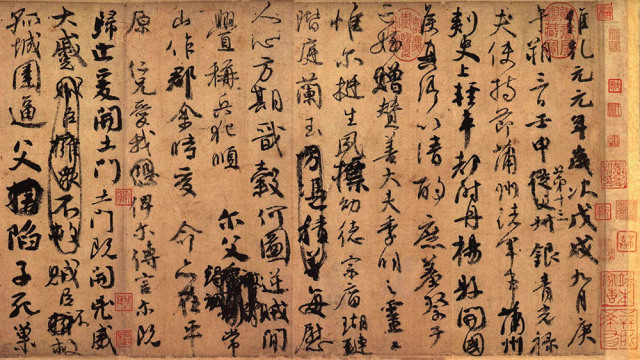 維乾元元年歲次戊戌九月庚
午朔三日壬申第十三叔銀青光祿
夫使持節蒲州諸軍事蒲州
刺史上輕車都尉丹楊縣開國
侯真卿以清酌庶羞祭于
亡姪贈贊善大夫季明之靈曰
惟爾挺生夙標幼德宗廟瑚璉
階庭蘭玉方憑積善每慰
人心方期戩穀何圖逆賊閒
釁稱兵犯順爾父竭誠常
山作郡余時受命亦在平
原仁兄愛我恐俾爾傳言爾既
歸止爰開土門土門既開凶威
大蹙賊臣擁衆不救賊臣不救
孤城圍逼父陷子死巢